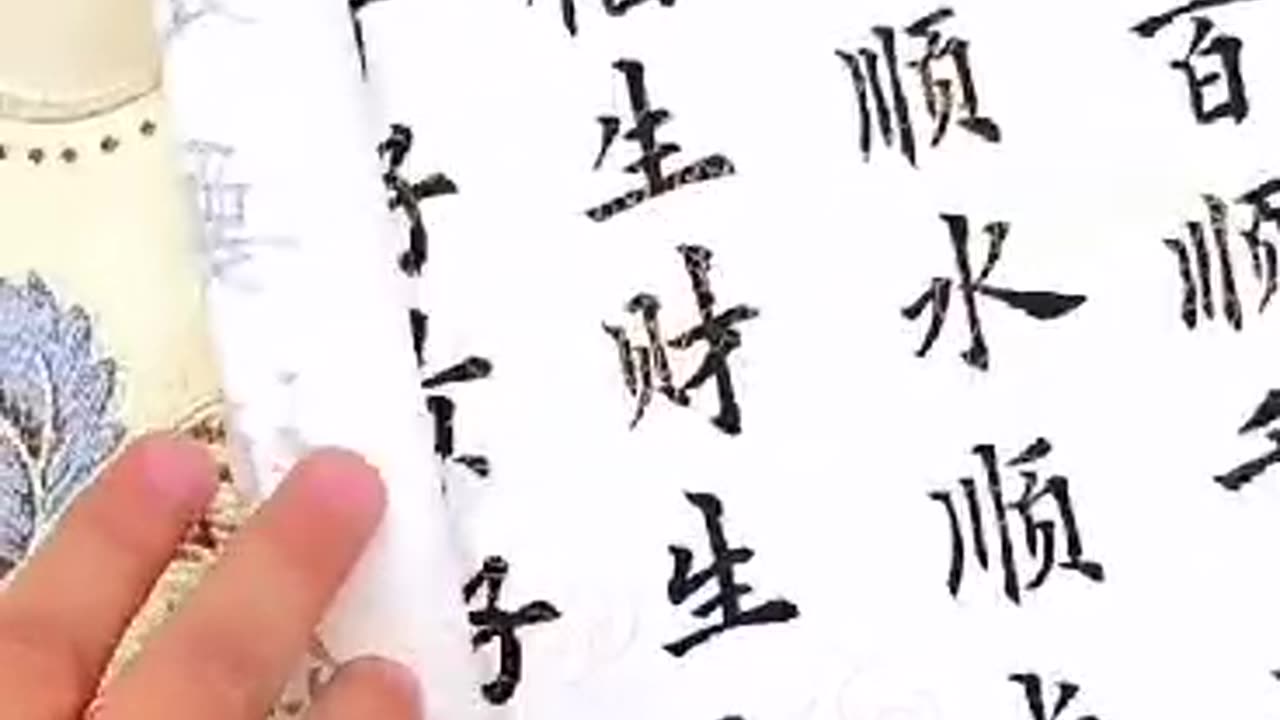 百顺
顺水顺
生财生
子子